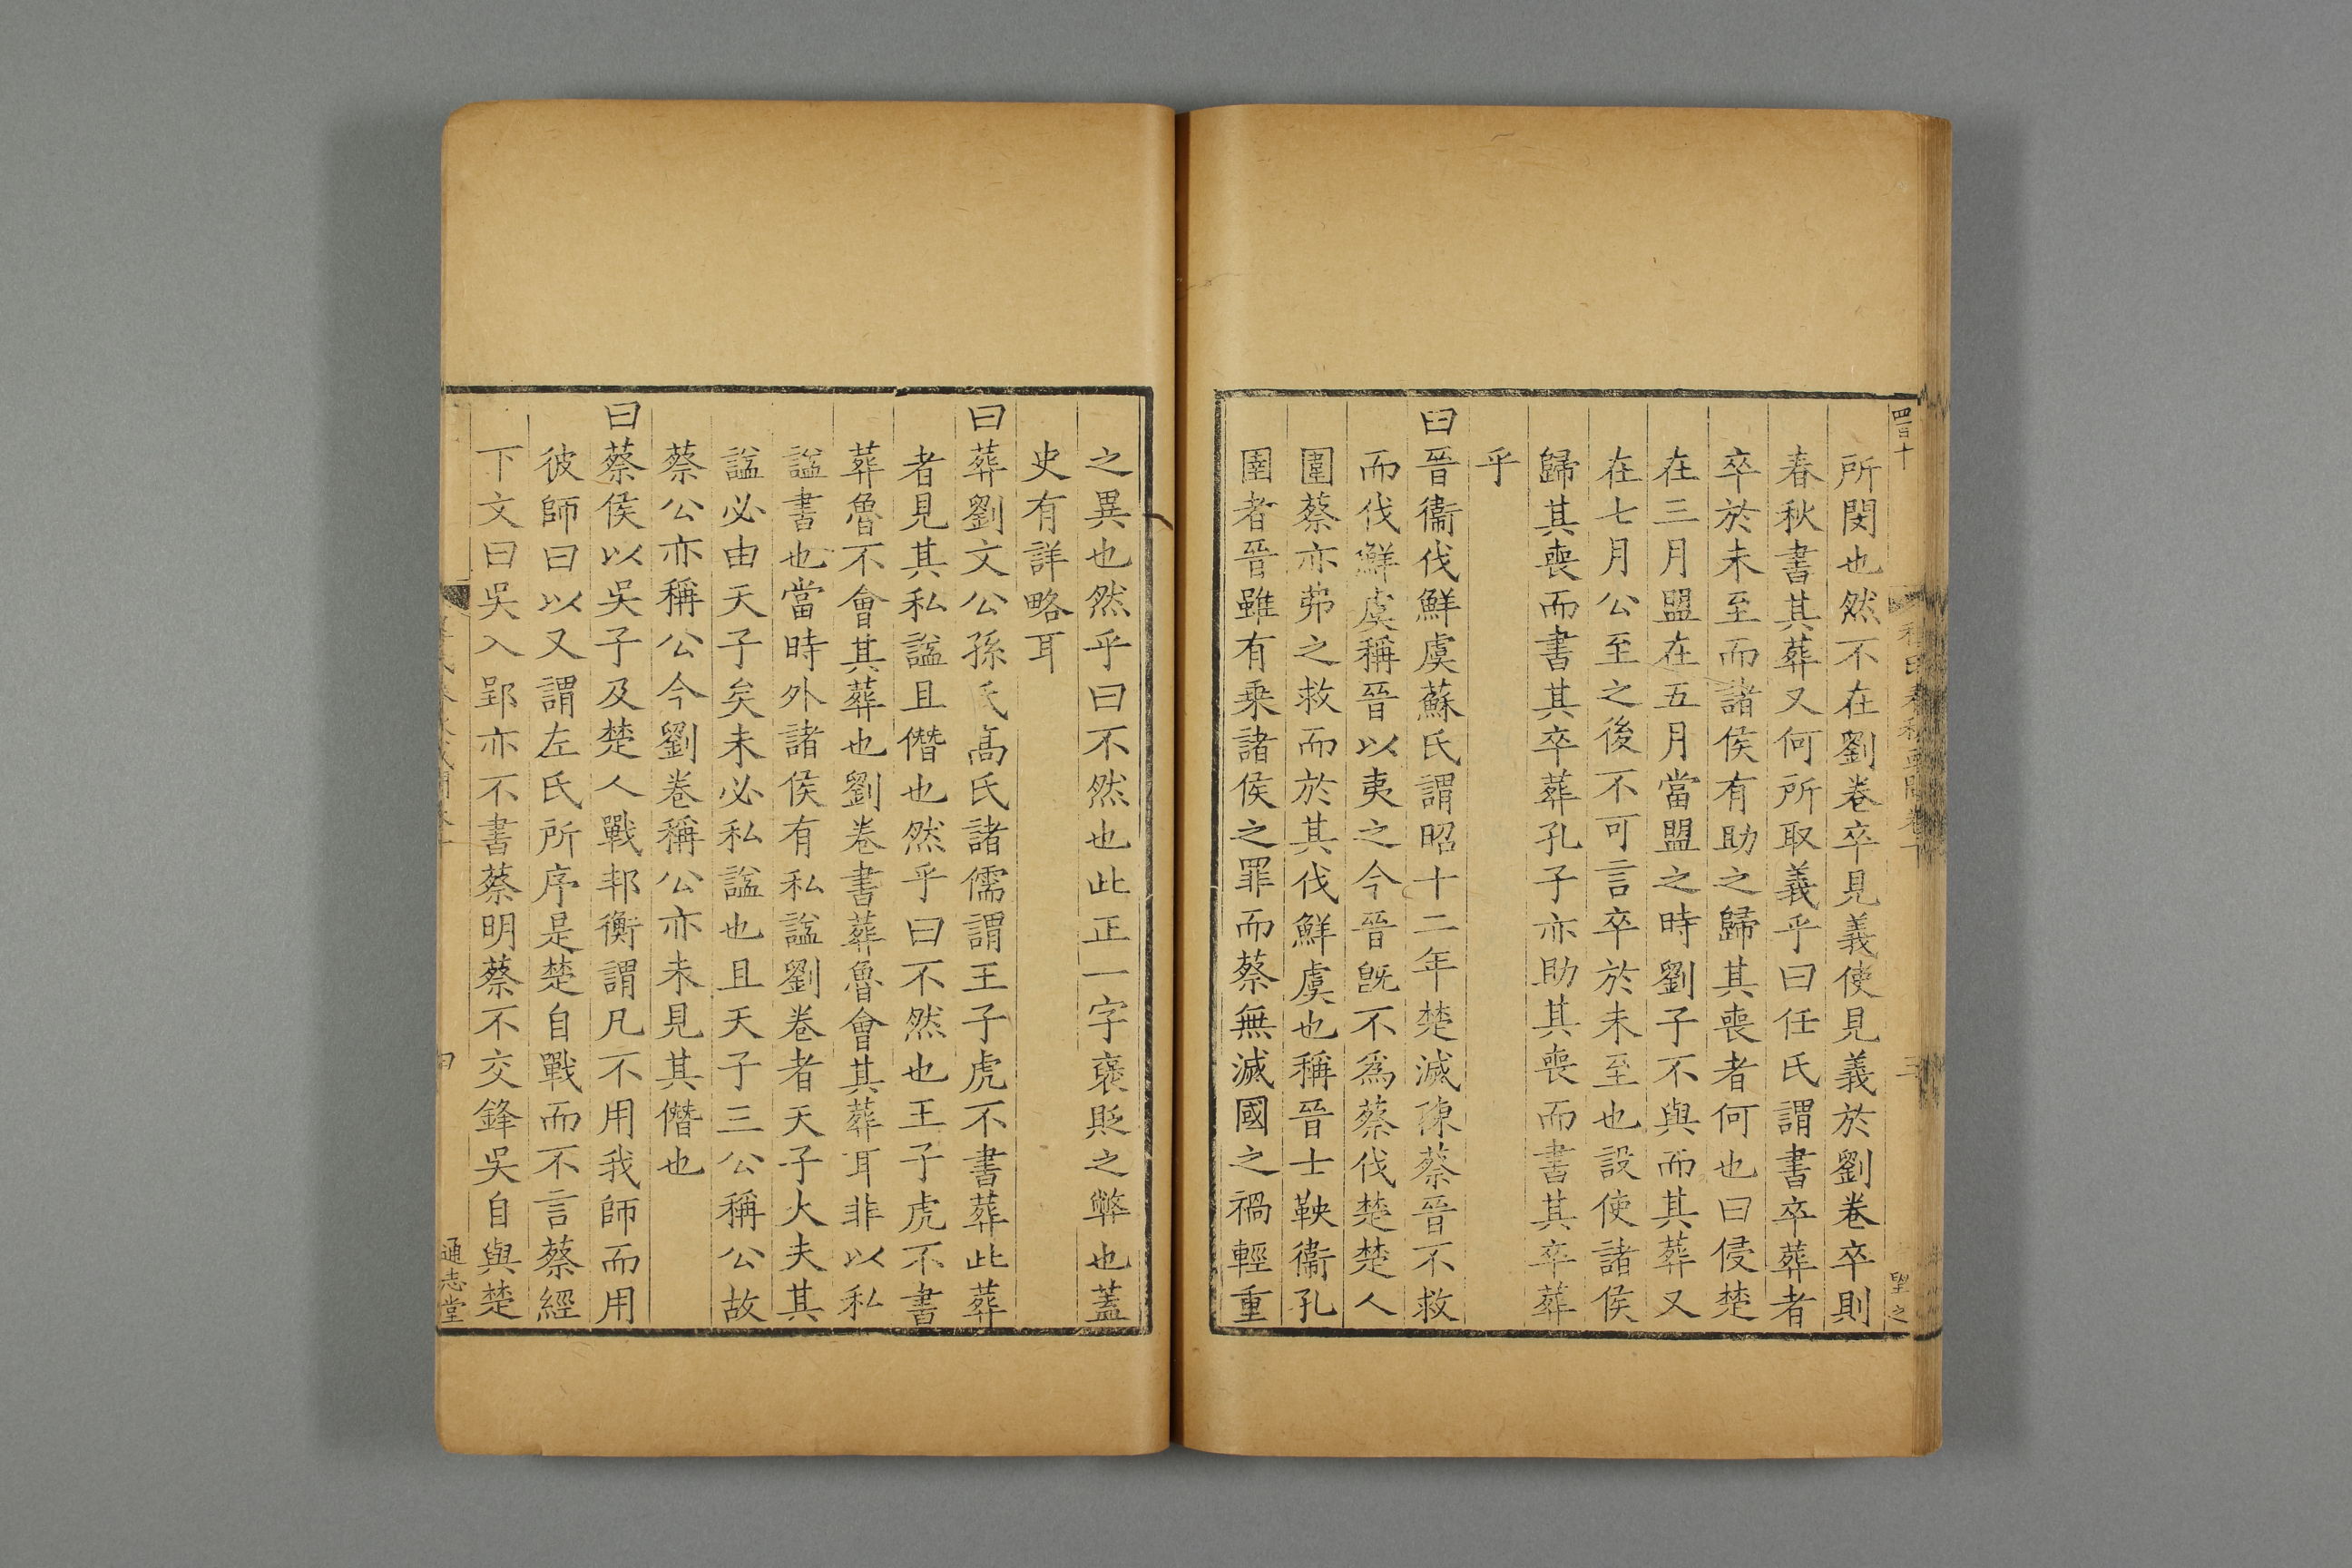 四百十
程氏春秋或問卷十
三
望之
所閔也然不在劉卷卒見義使見義於劉卷卒則
春秋書其葬又何所取義乎曰任氏謂書卒葬者
卒於未至而諸侯有助之歸其喪者何也曰侵楚
在三月盟在五月當盟之時劉子不與而其葬又
在七月公至之後不可言卒於未至也設使諸侯
歸其喪而書其卒葬孔子亦助其喪而書其卒葬
乎
曰晉衞伐鮮虞蘇氏謂昭十二年楚滅陳蔡晉不救
而伐鮮虞稱晉以夷之今晉旣不爲蔡伐楚楚人
圍蔡亦弗之救而於其伐鮮虞也稱晉士鞅衞孔
圉者晉雖有乗諸侯之罪而蔡無滅國之禍輕重
之異也然乎曰不然也此正一字褒貶之弊也蓋
史有詳略耳
曰葬劉文公孫氏髙氏諸儒謂王子虎不書葬此葬
者見其私諡且僭也然乎曰不然也王子虎不書
葬魯不會其葬也劉卷書葬魯會其葬耳非以私
諡書也當時外諸侯有私諡劉卷者天子大夫其
諡必由天子矣未必私諡也且天子三公稱公故
蔡公亦稱公今劉卷稱公亦未見其僭也
曰蔡侯以吳子及楚人戰邦衡謂凡不用我師而用
彼師曰以又謂左氏所序是楚自戰而不言蔡經
下文曰吳入郢亦不書蔡明蔡不交鋒吳自與楚
通志堂